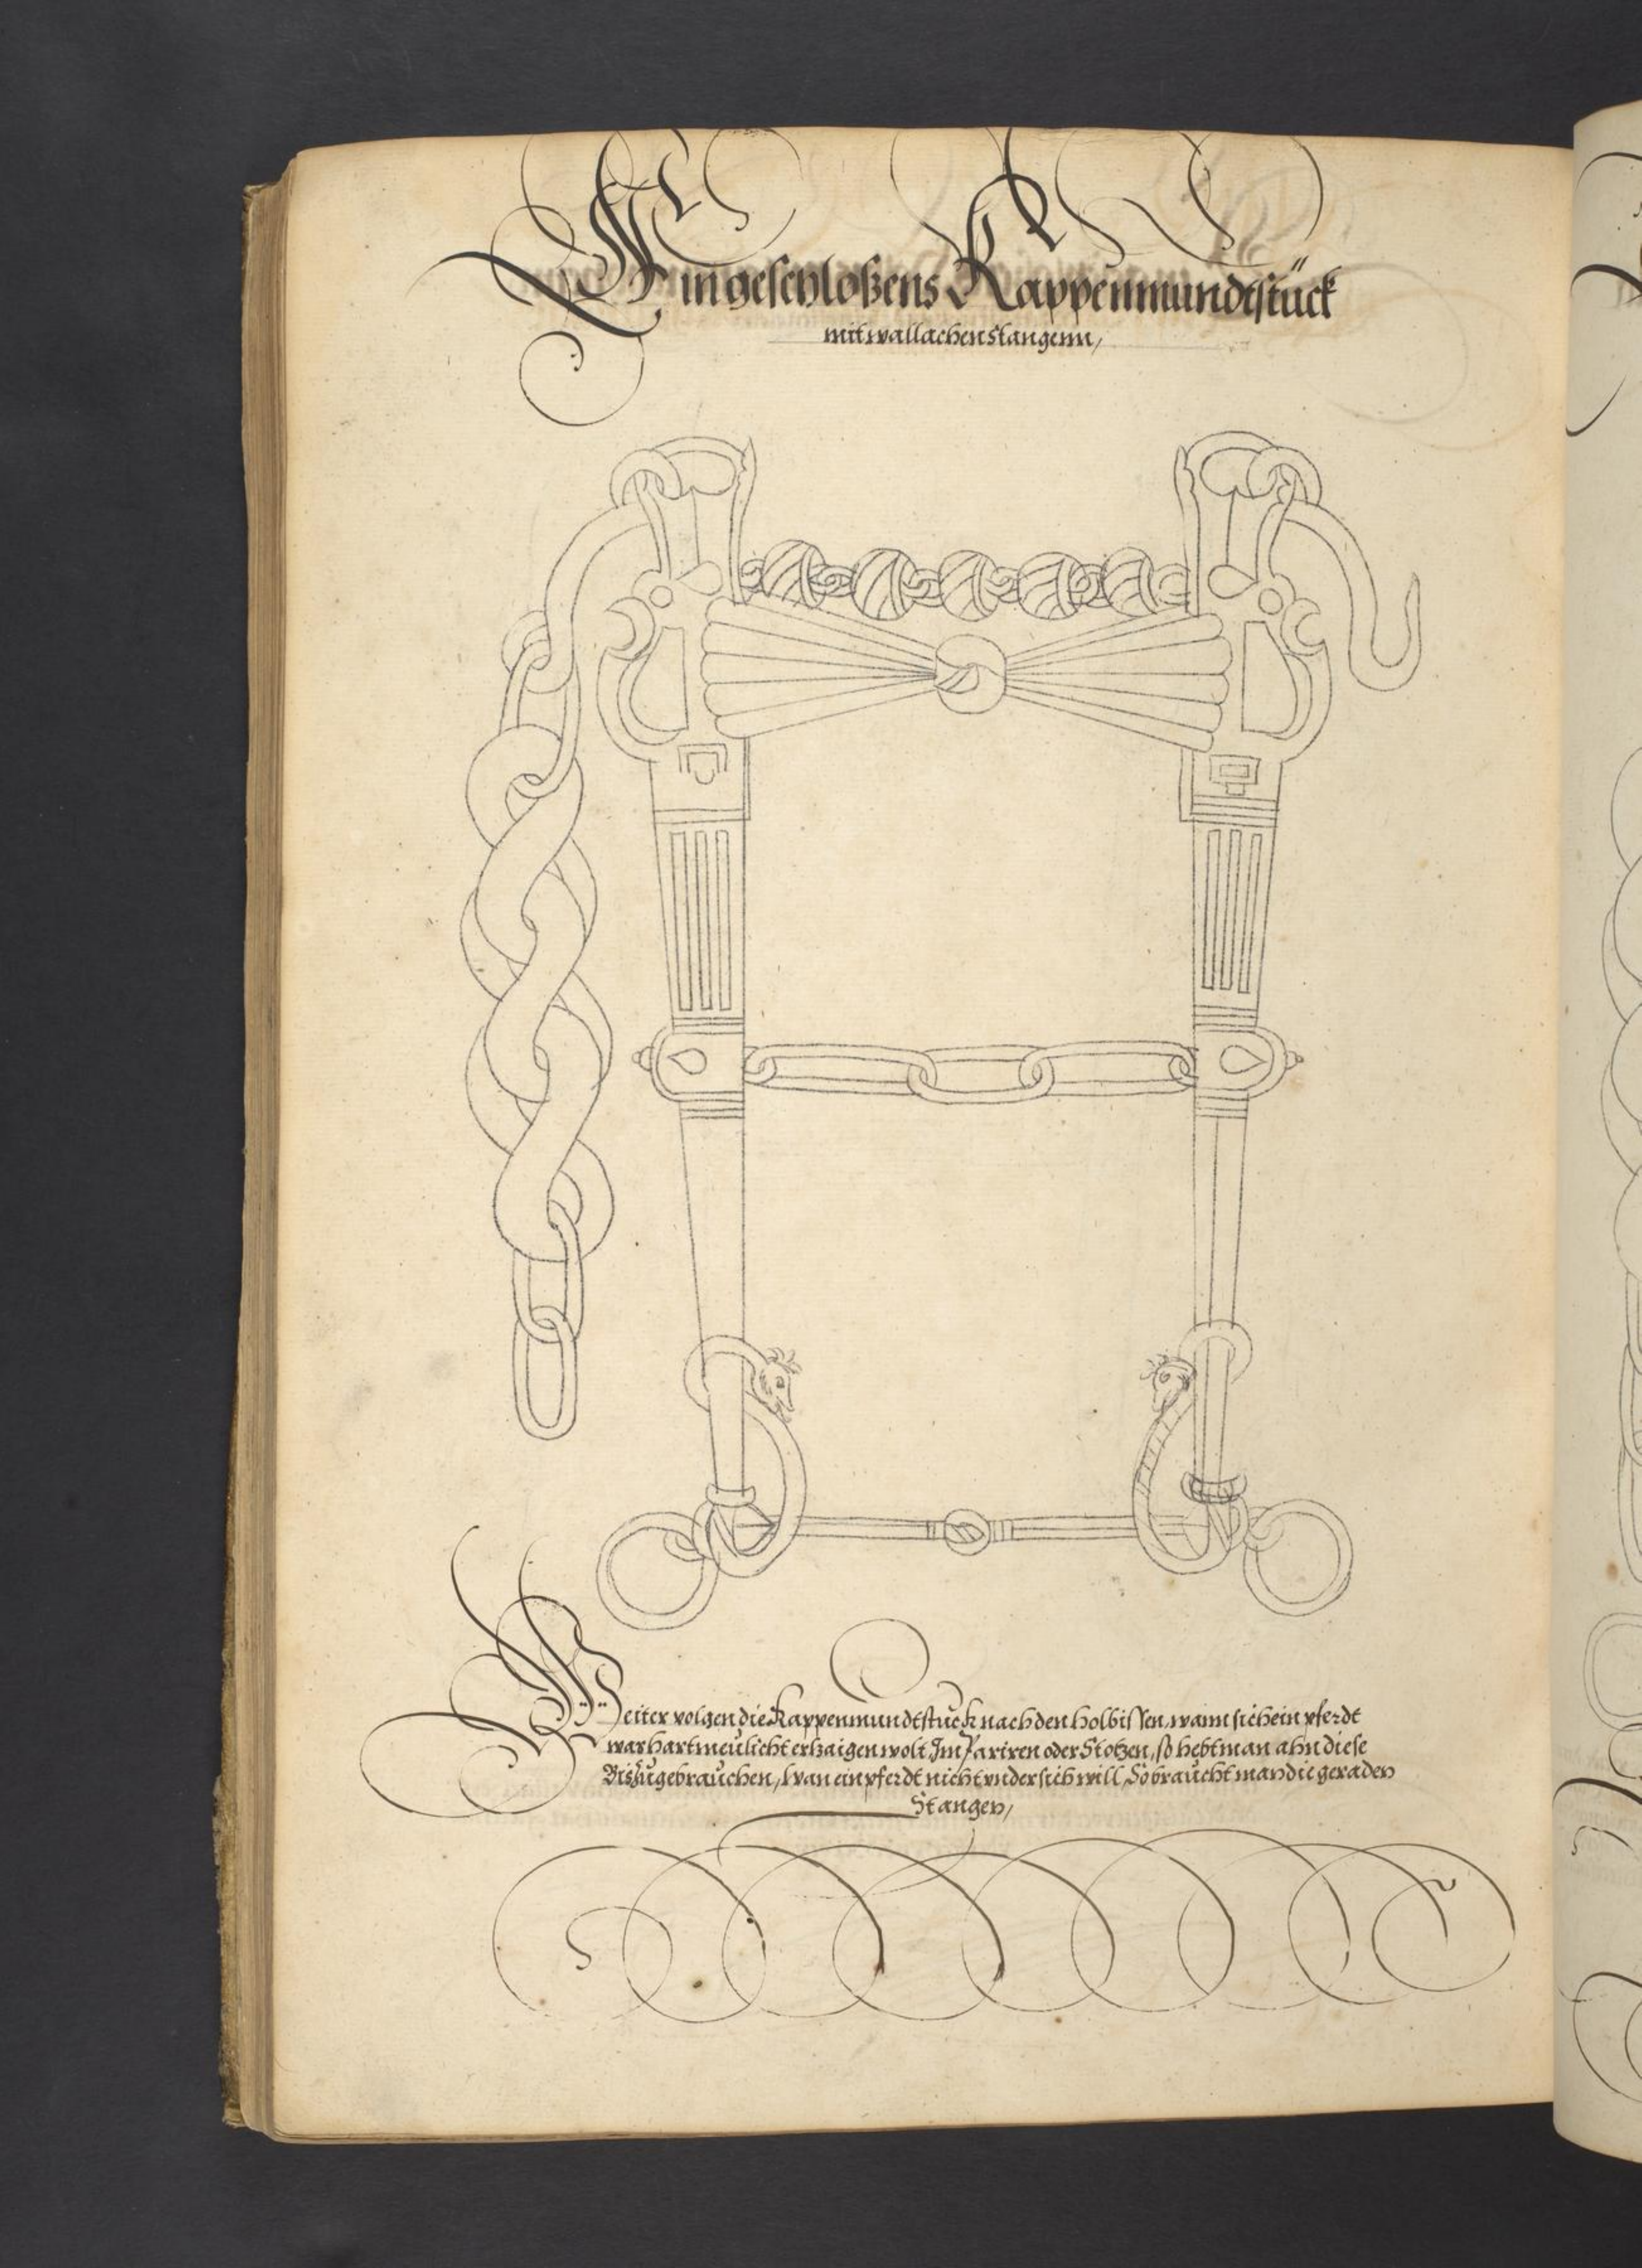 Ein geschloßens Kappenmundtstück
mit wallachen stangenn,
Weiter volgen die Kappenmundtstuck nach den holbissen, wann sich ein pferdt
war hartmeulicht erhaigen wolt, Im Pariren oder Stotzen, so hebt man ahn diese
Bis zugebrauchen, Wan ein pferdt nicht vnder sich will, So braucht man die geraden
Stangen,